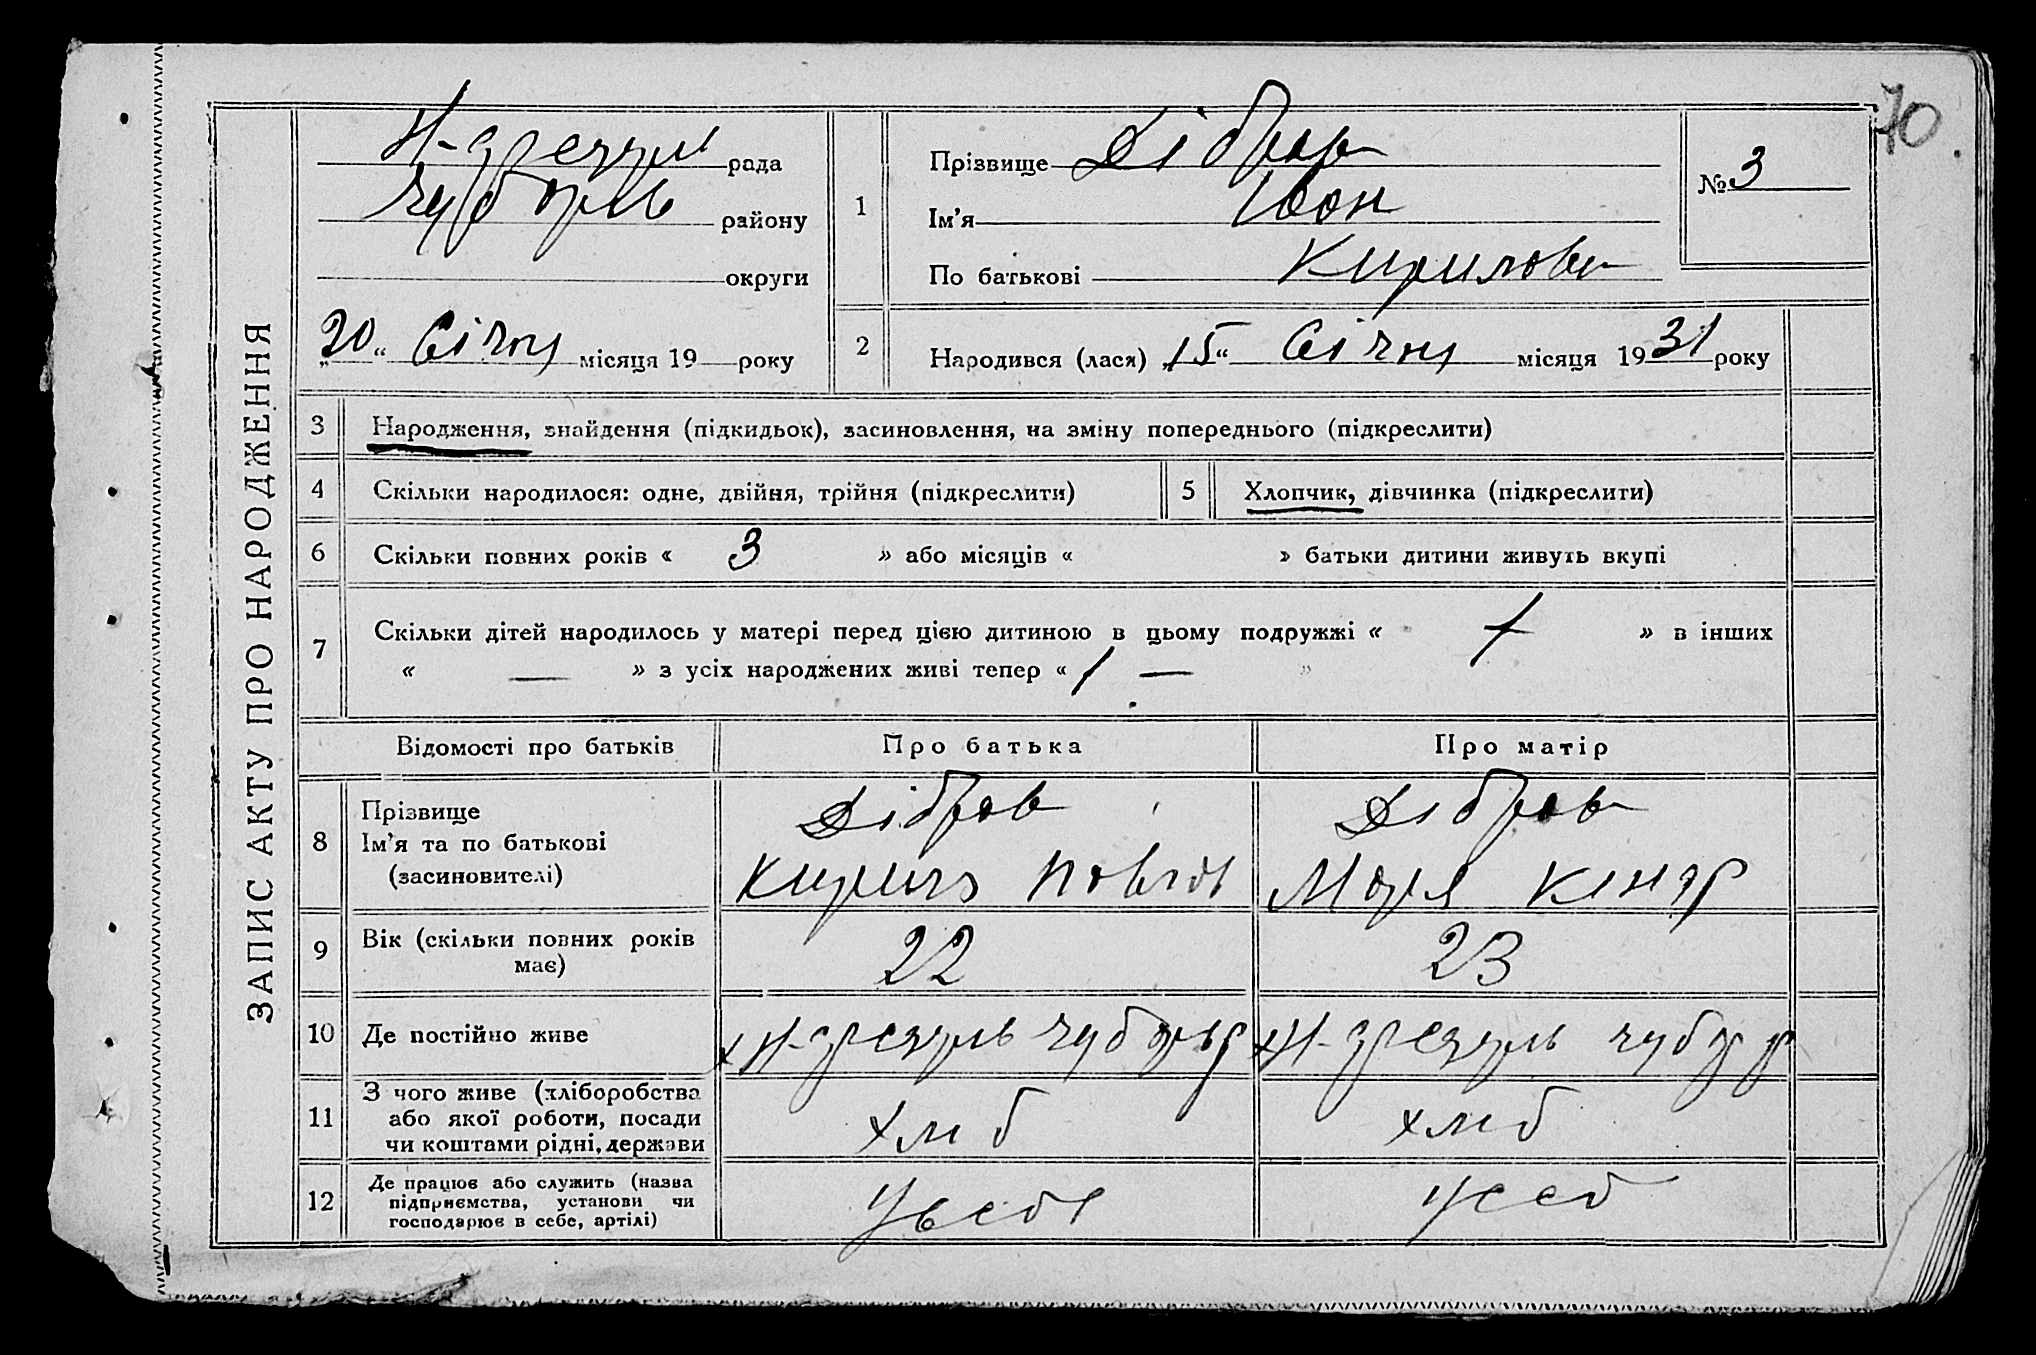 70
ЗАПИС АКТУ ПРО НАРОДЖЕННЯ
рада
району
округи
„20“ Січня місяця 19 року
1
Прізвище Дібров
Ім'я Іван
По батькові Кирилов
№ 3
2
Народився (лася) „15“ Січня місяця 1931 року
3 Народження, знайдення (підкидьок), засиновлення, на зміну попереднього (підкреслити)
4 Скільки народилося: одне, двійня, трійня (підкреслити)
5 Хлопчик, дівчинка (підкреслити)
6 Скільки повних років « 3 » або місяців « » батьки дитини живуть вкупі
7 Скільки дітей народилось у матері перед цією дитиною в цьому подружжі « 1 » в інших
« — » з усіх народжених живі тепер « 1 — »
Відомості про батьків Про батька Про матір
8 Прізвище
Ім'я та по батькові
(засиновителі)
Дібров
Кирило Павлов
Дібров
Марія
9 Вік (скільки повних років
має)
22
23
10 Де постійно живе
11 З чого живе (хліборобства
або якої роботи, посади
чи коштами рідні, держави
хліб
хліб
12 Де працює або служить (назва
підприємства, установи чи
господарює в себе, артілі)